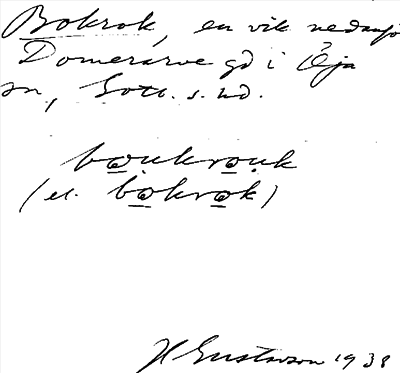 Bokrok, en vik nedanför
Domerarve gd i Öja
sn, Gotl. s. hd.
bo̲u̥kro̲u̥k
(el. bo̲kro̲k)
H Gustavson 1938